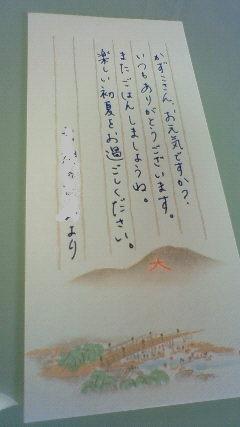 かずこさん、お元気ですか?
いつもありがとうございます。
またごはんしましょうね。
楽しい初夏をお過ごしください。
より
大